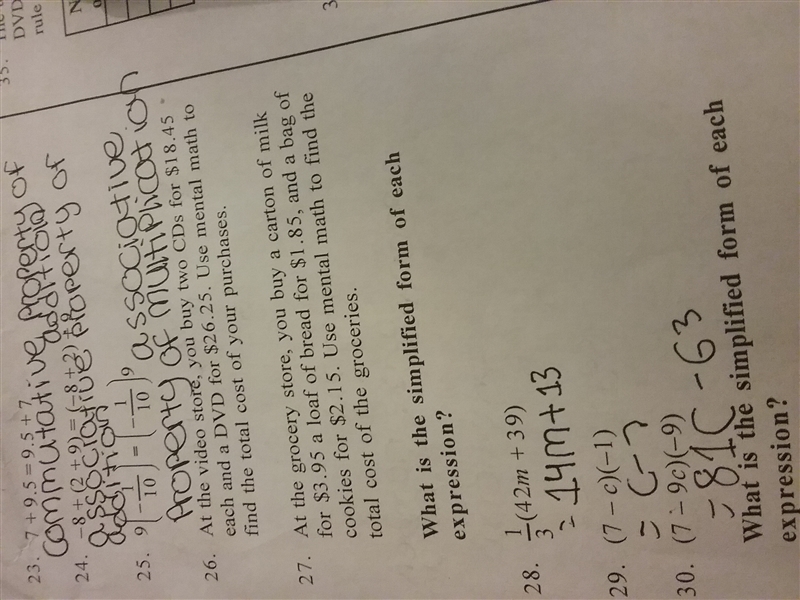 23. 7 + 9.5 = 9.5 + 7
commutative property of
addition
24. -8 + (2 + 9) = (-8 + 2) + 9
associative property of
addition
25. 9(-1/10) = (-1/10)9 associative
property of multiplication
26. At the video store, you buy two CDs for $18.45
each and a DVD for $26.25. Use mental math to
find the total cost of your purchases.
27. At the grocery store, you buy a carton of milk
for $3.95 a loaf of bread for $1.85, and a bag of
cookies for $2.15. Use mental math to find the
total cost of the groceries.
What is the simplified form of each
expression?
28. 1/3(42m + 39)
= 14m + 13
29. (7 - c)(-1)
= c - 7
30. (7 - 9c)(-9)
= 81c - 63
What is the simplified form of each
expression?
35.
DVD
rule
N
3